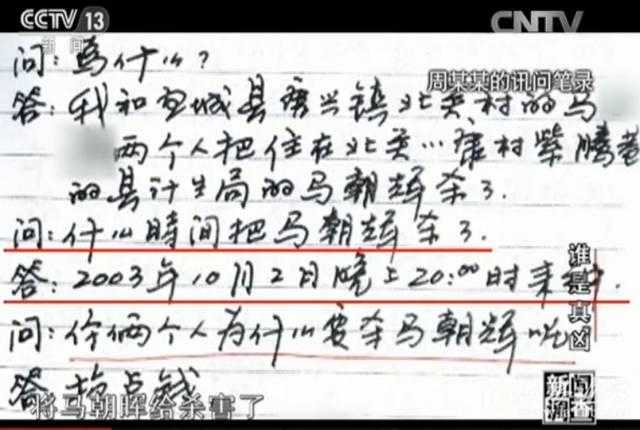 CCTV 13 CNTV
新闻
问:為什么?
周某某的讯问笔录
答:我和 城县 兴镇北关村的马
两个人把住在北关 村紫腾巷
的县计生局的马朝辉杀了.
问:什么時间把马朝辉杀了.
答:2003年10月2日晚上20:00时来钟.
谁是真凶
问:你俩个人为什么要杀马朝辉呢
答 抢点钱
将马朝晖给杀害了
新闻调查